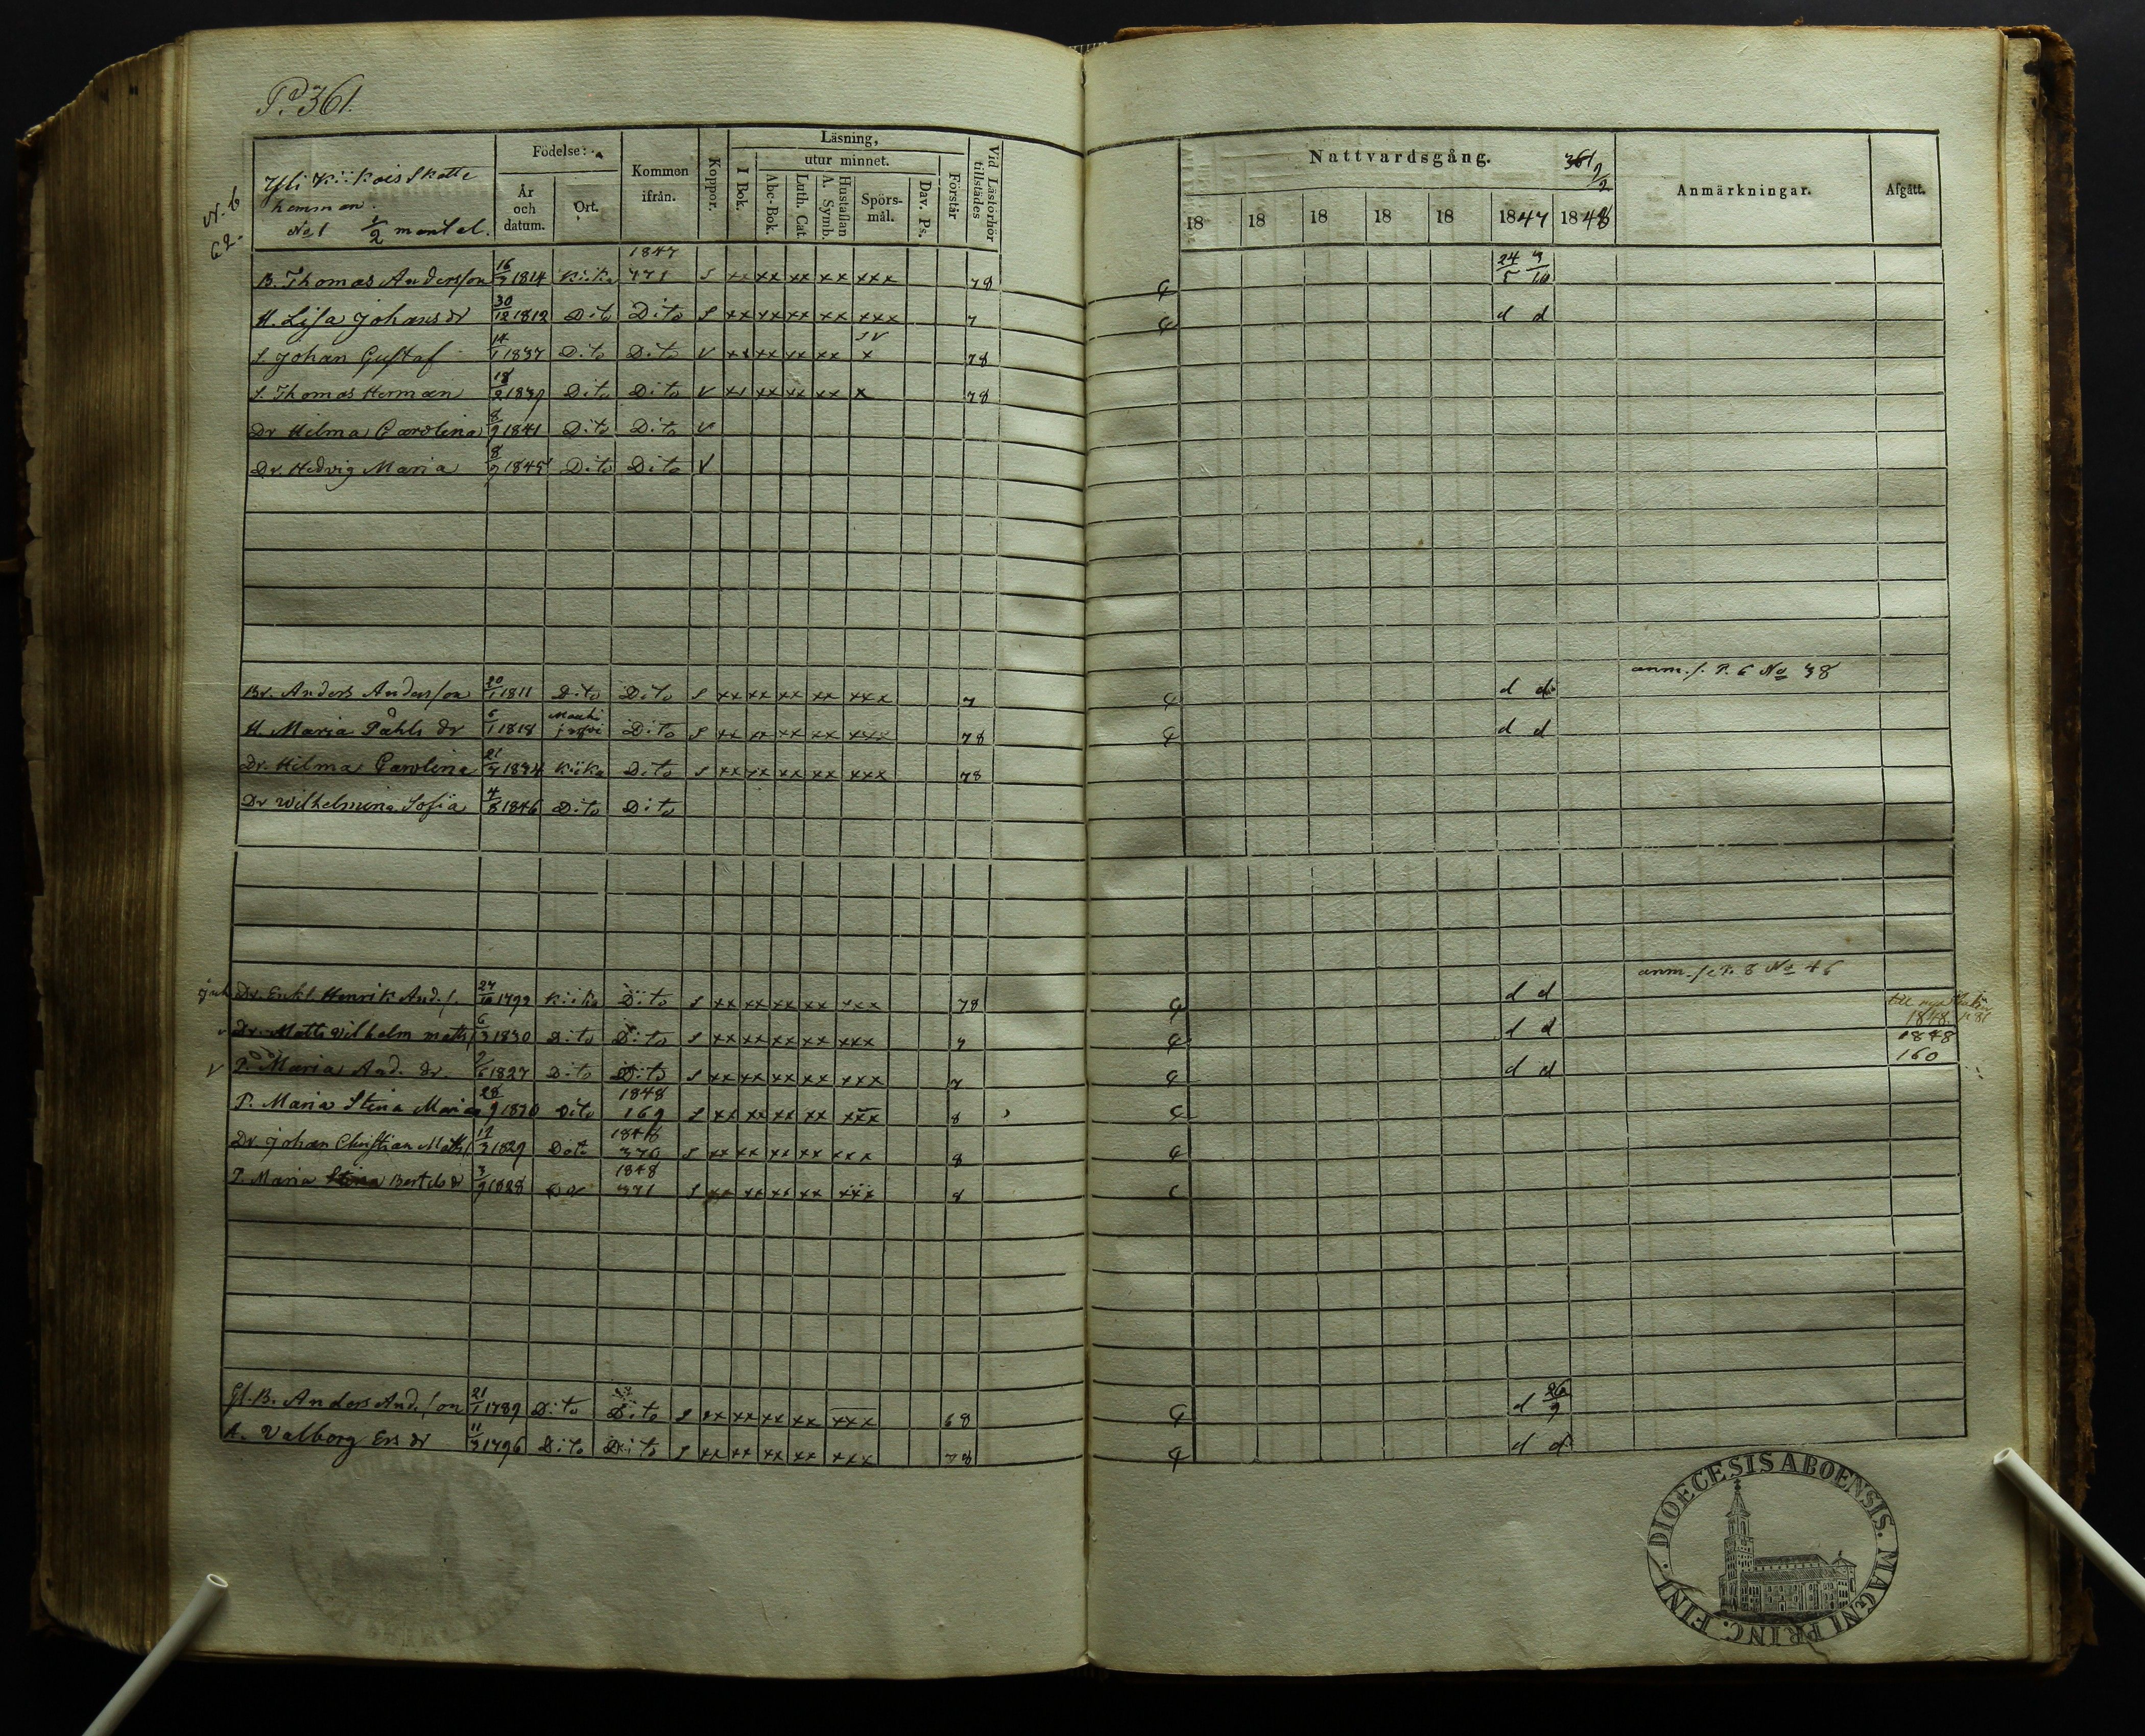 P. 361.
Läsning,
Födelse:
utur minnet.
Kommen ifrån.
Koppor.
I Bok.
Abc-Bok.
Luth. Cat.
Hustaflan A. Symb.
Spörs-mål.
Dav. Ps.
Förstår
Vid Läsförhör tillstädes
År och datum.
Ort.
Yli Kiikois Skatte
hemman.
No 1 1/2 mantal.
N. 6
62.
Nattvardsgång. 361 2/2
Anmärkningar.
Afgått.
18 18 18 18 18 1847 1848
1847
B. Thomas Andersson 16/3 1814 Kiika 371 S xx xx xx xx xxx 78 24/5 3/10
H. Lisa Johans dr 30/12 1812 Dito Dito S xx xx xx xx xxx 7 d d
S. Johan Gustaf 14/1 1837 Dito Dito V xx xx xx xx x 78
S. Thomas Herman 18/2 1839 Dito Dito V xx xx xx xx x 78
Dr Hilma Carolina 8/9 1841 Dito Dito V
Dr. Hedvig Maria 8/9 1845 Dito Dito V
anm. s. P. 6 No 38
Br. Anders Andersson 20/1 1811 Dito Dito S xx xx xx xx xxx 7 d d
H. Maria Påhls dr 6/1 1818 Dito S xx xx xx xx xxx 78 d d
Dr. Hilma Carolina 21/3 1834 Kiika Dito S xx xx xx xx xxx 78
Dr Wilhelmina Sofia 4/8 1846 Dito Dito
anm. s. P. 8 No 46
Dr. Enkl. Henrik And. s. 27/10 1799 Kiika Dito S xx xx xx xx xxx 78 d d
1848 p 81
Dr. Matts Wilhelm Matts s 6/3 1830 Dito Dito S xx xx xx xx xxx 7 d d 1848
P. Maria And. dr. 1827 Dito Dito S xx xx xx xx xxx 7 d d 160
1848
P. Maria Stina 28/9 1830 Dito 169 S xx xx xx xx xxx 8
1848
Dr Johan Christian Matts s 12/3 1829 Dito 370 S xx xx xx xx xxx 8
1848
P. Maria Stina Bertils dr 3/9 1828 371 S xx xx xx xx xxx 8
Gl. B. Anders And. son 21/1 1789 Dito Dito S xx xx xx xx xxx 68 d 26/9
H. Valborg Ers dr 11/3 1796 Dito Dito S xx xx xx xx xxx 78 d d
DIOECESIS ABOENSIS. MAGNI PRINC. FINL.